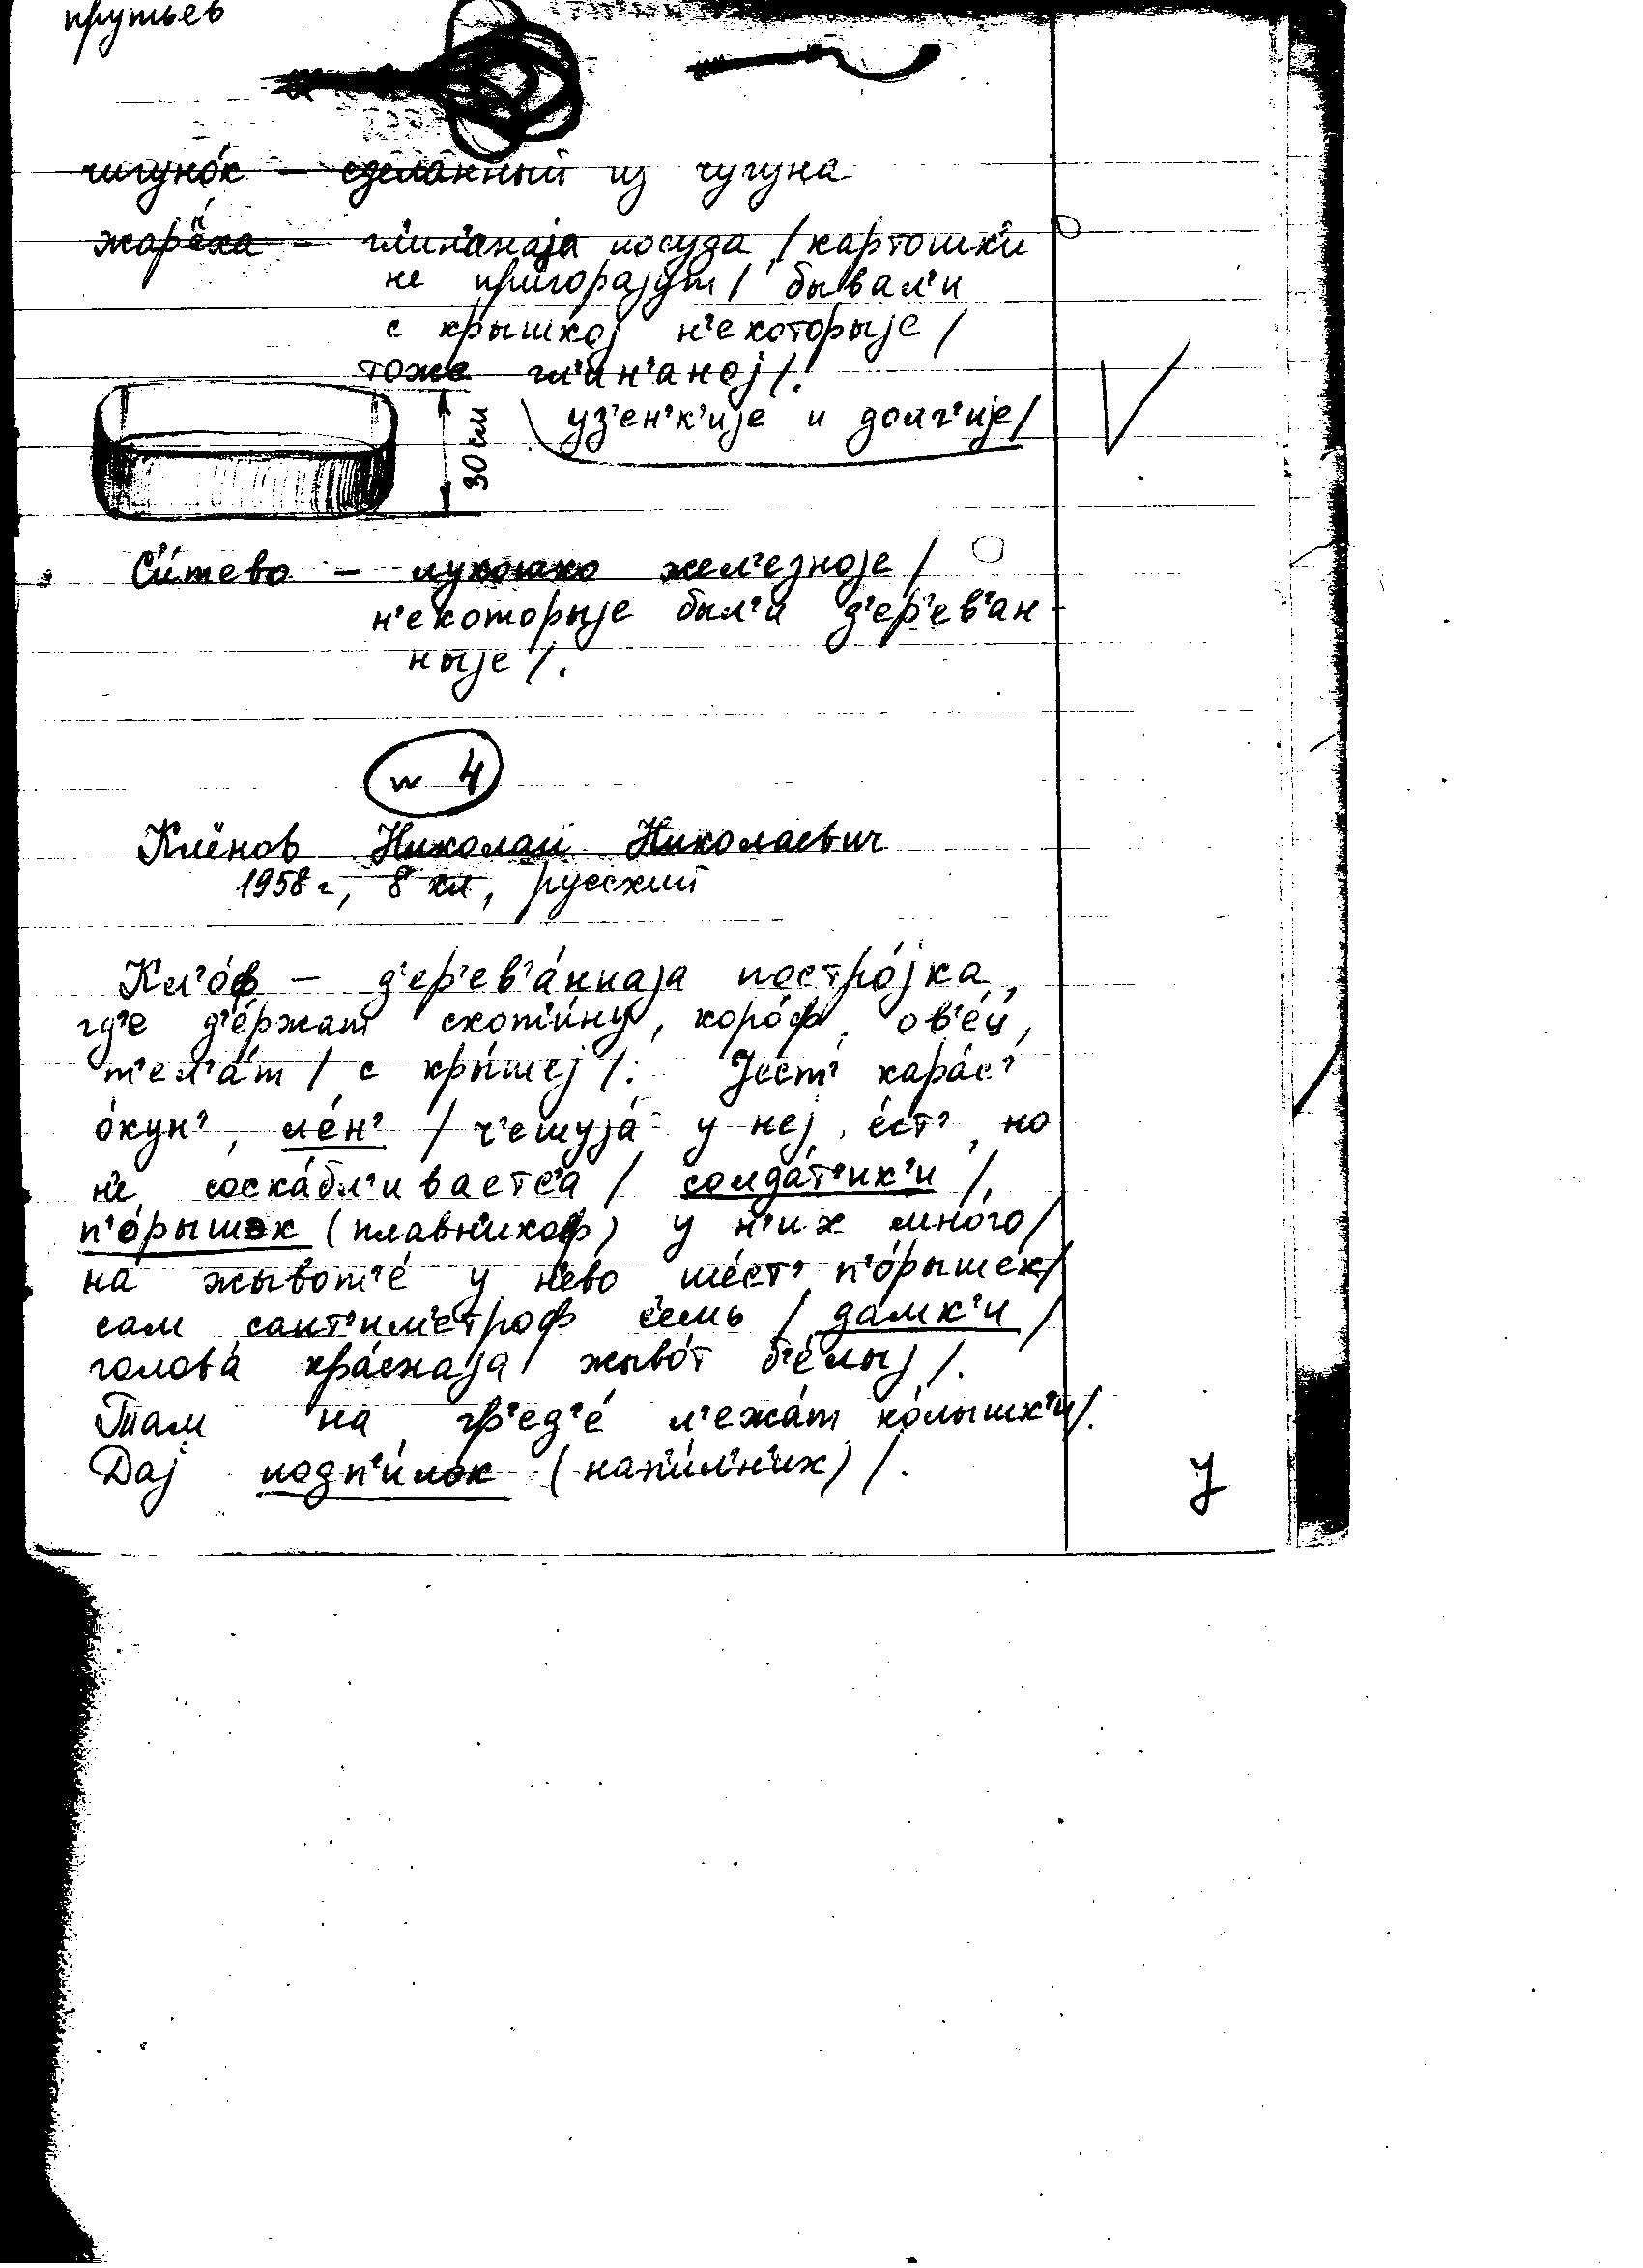 прутьев
чигуно́к – сделанный из чугуна
жарёха – гл'ин'анаjа посуда / картошк'и
не пр'игорајут / бывал'и
с крышкој н'екоторыје /
тоже гл'ин'аној /.
уз'ен'к'ије и долг'ије /
30 см
Си́тево – лукошко жел'езноје /
н'екоторыје был'и д'ер'ев'ан-
ныје /.
№ 4
Клёнов Николай Николаевич
1958 г, 8 кл, русский
Кл'о́ф – д'ер'ев'а́ннаја постро́јка,
гд'е д'е́ржат скот'и́ну, коро́ф, ов'е́ц,
т'ел'а́т / с кры́шеј /. Јест' кара́с'
о́кун', ле́н' / ч'ешуја́ у неј е́ст', но
н'е соска́бл'иваетс'а / солда́т'ик'и /,
п'о́рышэк (плавн'икоф) у н'их мно́го /
на жывот'е́ у н'ево шест' п'о́рышек /
сам сант'им'етроф семь / да́мк'и /
голова́ кра́снаја жыво́т б'е́лыј /.
Там на гр'ед'е́ л'ежа́т ко́лышк'и /.
Дај подп'и́лок (нап'и́л'н'ик) /.
У